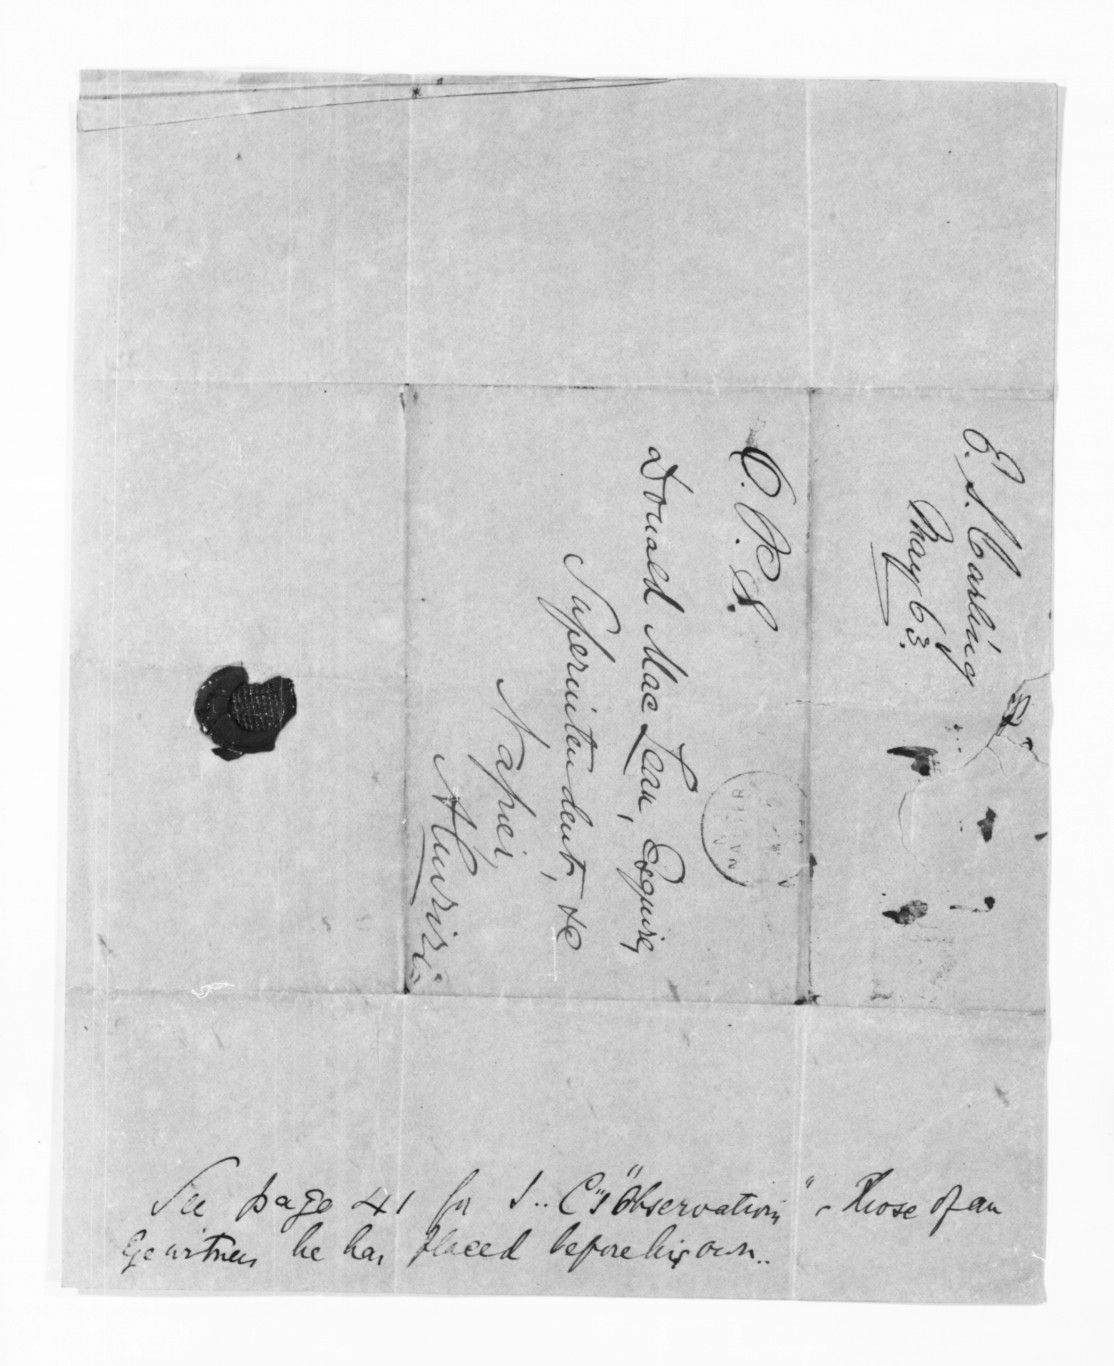 E. S. Curling
May 63.
O. P. S.
Donald Mac Lean, Esquire,
Superintendent, &c
Napier,
Ahuriri
See page 41 for J.. C"s "Observation" - Those of an
Eyewitness he has placed before his own..